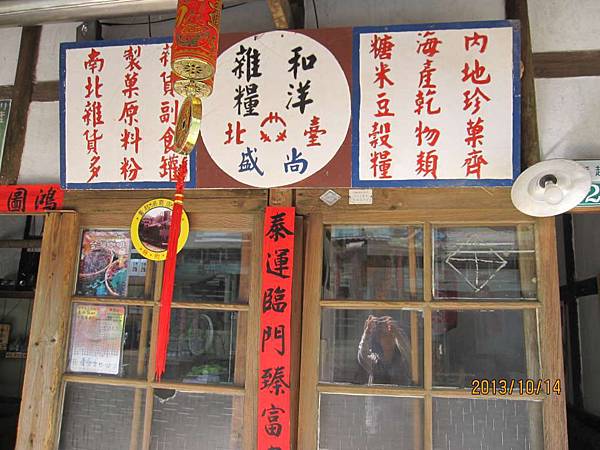 內地珍菓齊
海產乾物類
糖米豆穀糧
和洋
雜糧
臺
北
尚
盛
雜貨副食罐
製菓原料粉
南北雜貨多
鴻圖
泰運臨門臻富
2013/10/14